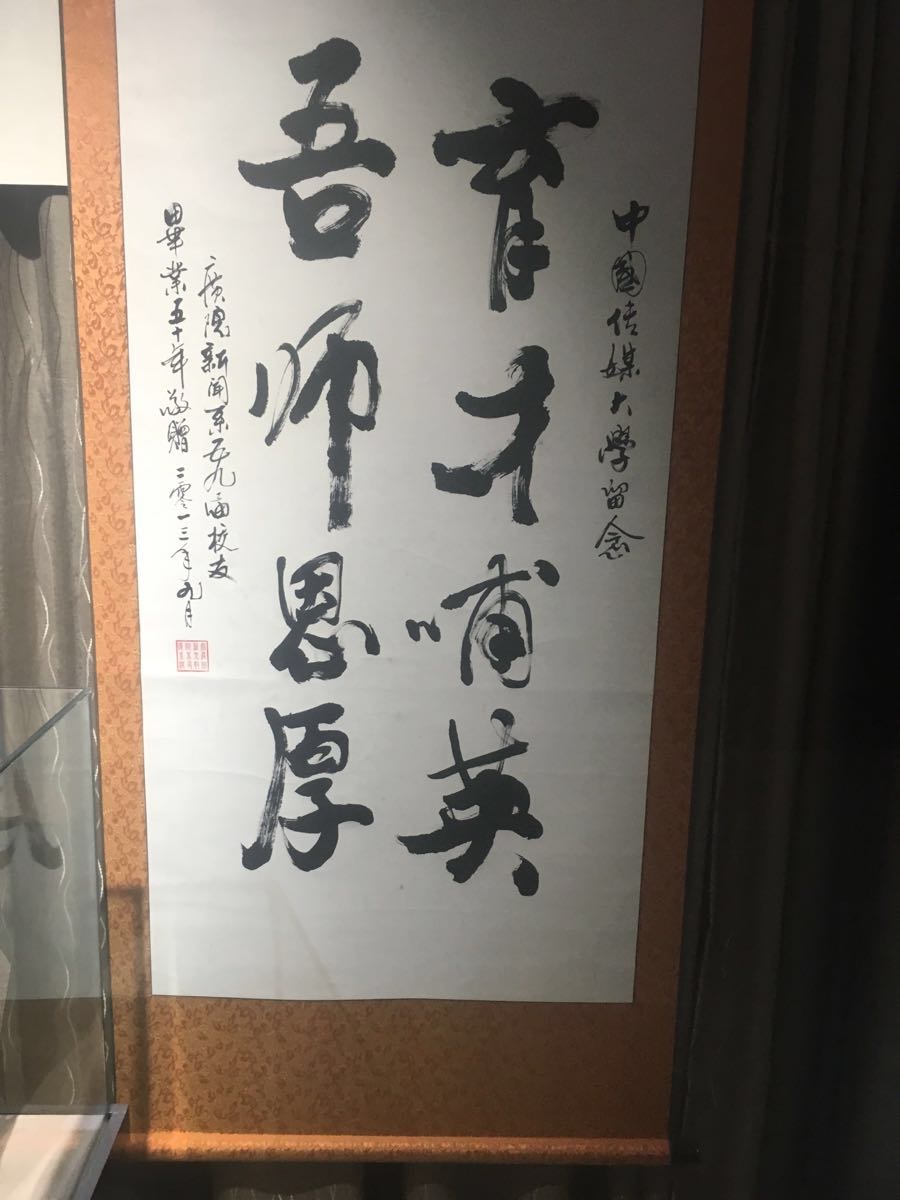 中國传媒大學留念
育才哺英
吾师恩厚
廣院新闻系五九届校友
畢業五十年敬贈 二零一三年九月